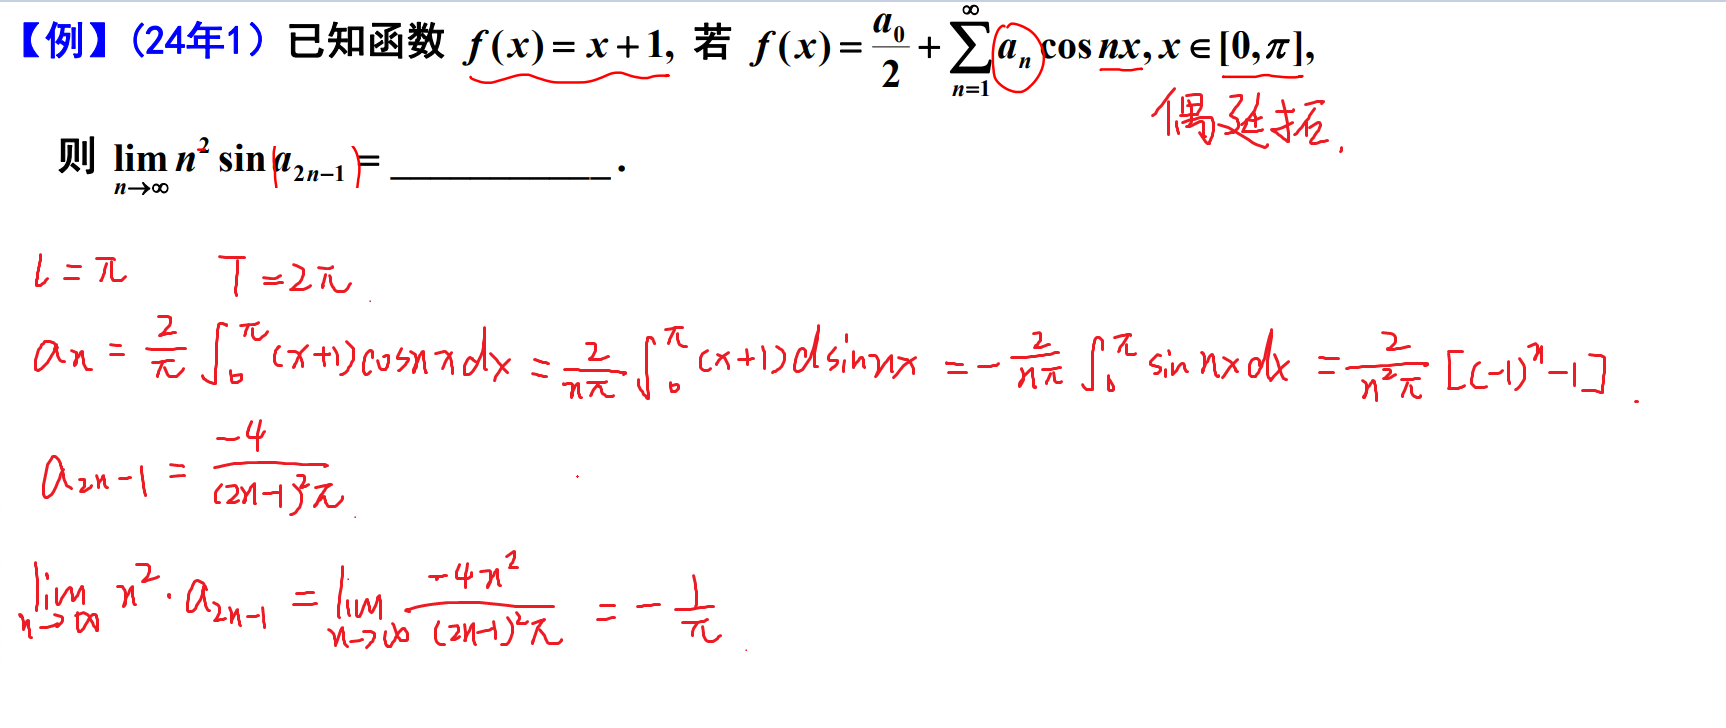 【例】(24年1) 已知函数 f(x) = x + 1, 若 f(x) = a₀/2 + ∑_{n=1}^{∞} aₙ cos nx, x ∈ [0, π],
偶延拓.
则 lim_{n→∞} n² sin(a_{2n−1}) = ____________ .
l = π T = 2π
aₙ = 2/π ∫₀^π (x+1) cos nx dx = 2/(nπ) ∫₀^π (x+1) d sin nx = − 2/(nπ) ∫₀^π sin nx dx = 2/(n²π) [(-1)ⁿ − 1].
a_{2n−1} = −4/((2n−1)²π)
lim_{n→∞} n² · a_{2n−1} = lim_{n→∞} −4n²/((2n−1)²π) = − 1/π